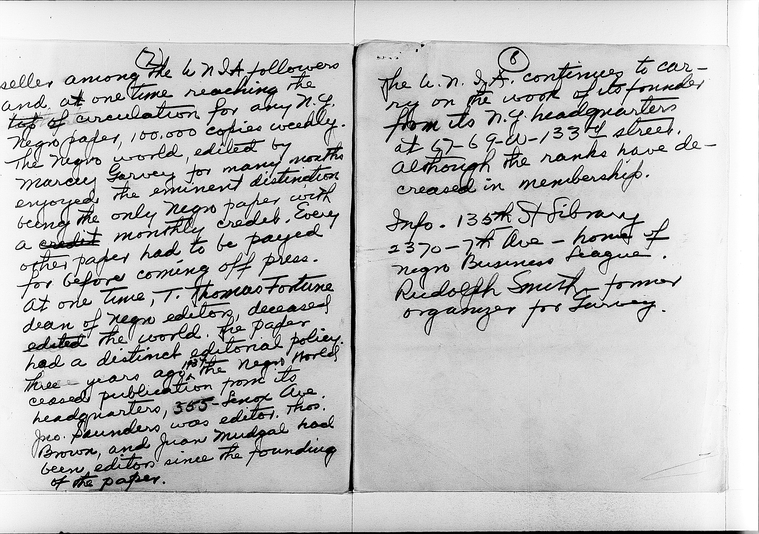 (7)
seller among the U N I A followers
and at one time reaching the
top of circulation for any N.Y.
Negro paper, 100.000 copies weekly.
The Negro world, edited by
Marcus Garvey for many months
enjoyed the eminent distinction
being the only Negro paper with
a credit monthly credit. Every
other paper had to be payed
for before coming off press.
At one time, T. Thomas Fortune
dean of Negro editors, deceased
edited the World. The paper
had a distinct editorial policy.
Three - years ago, the Negro World
ceased publication from its
headquarters, 355 - Lenox Ave.
Jno. Saunders was editor. Thos.
Brown, and Juan Mudgal had
been editors since the founding
of the paper.
(8)
The U. N. I. A. continues to car-
ry on the work of its founder
from its N.Y. headquarters
at 67-69-W-133rd street.
Although the ranks have de-
creased in membership.
Info. 135th St Library
2370 - 7th Ave - home of
Negro Business League.
Rudolph Smith - former
organizer for Garvey.